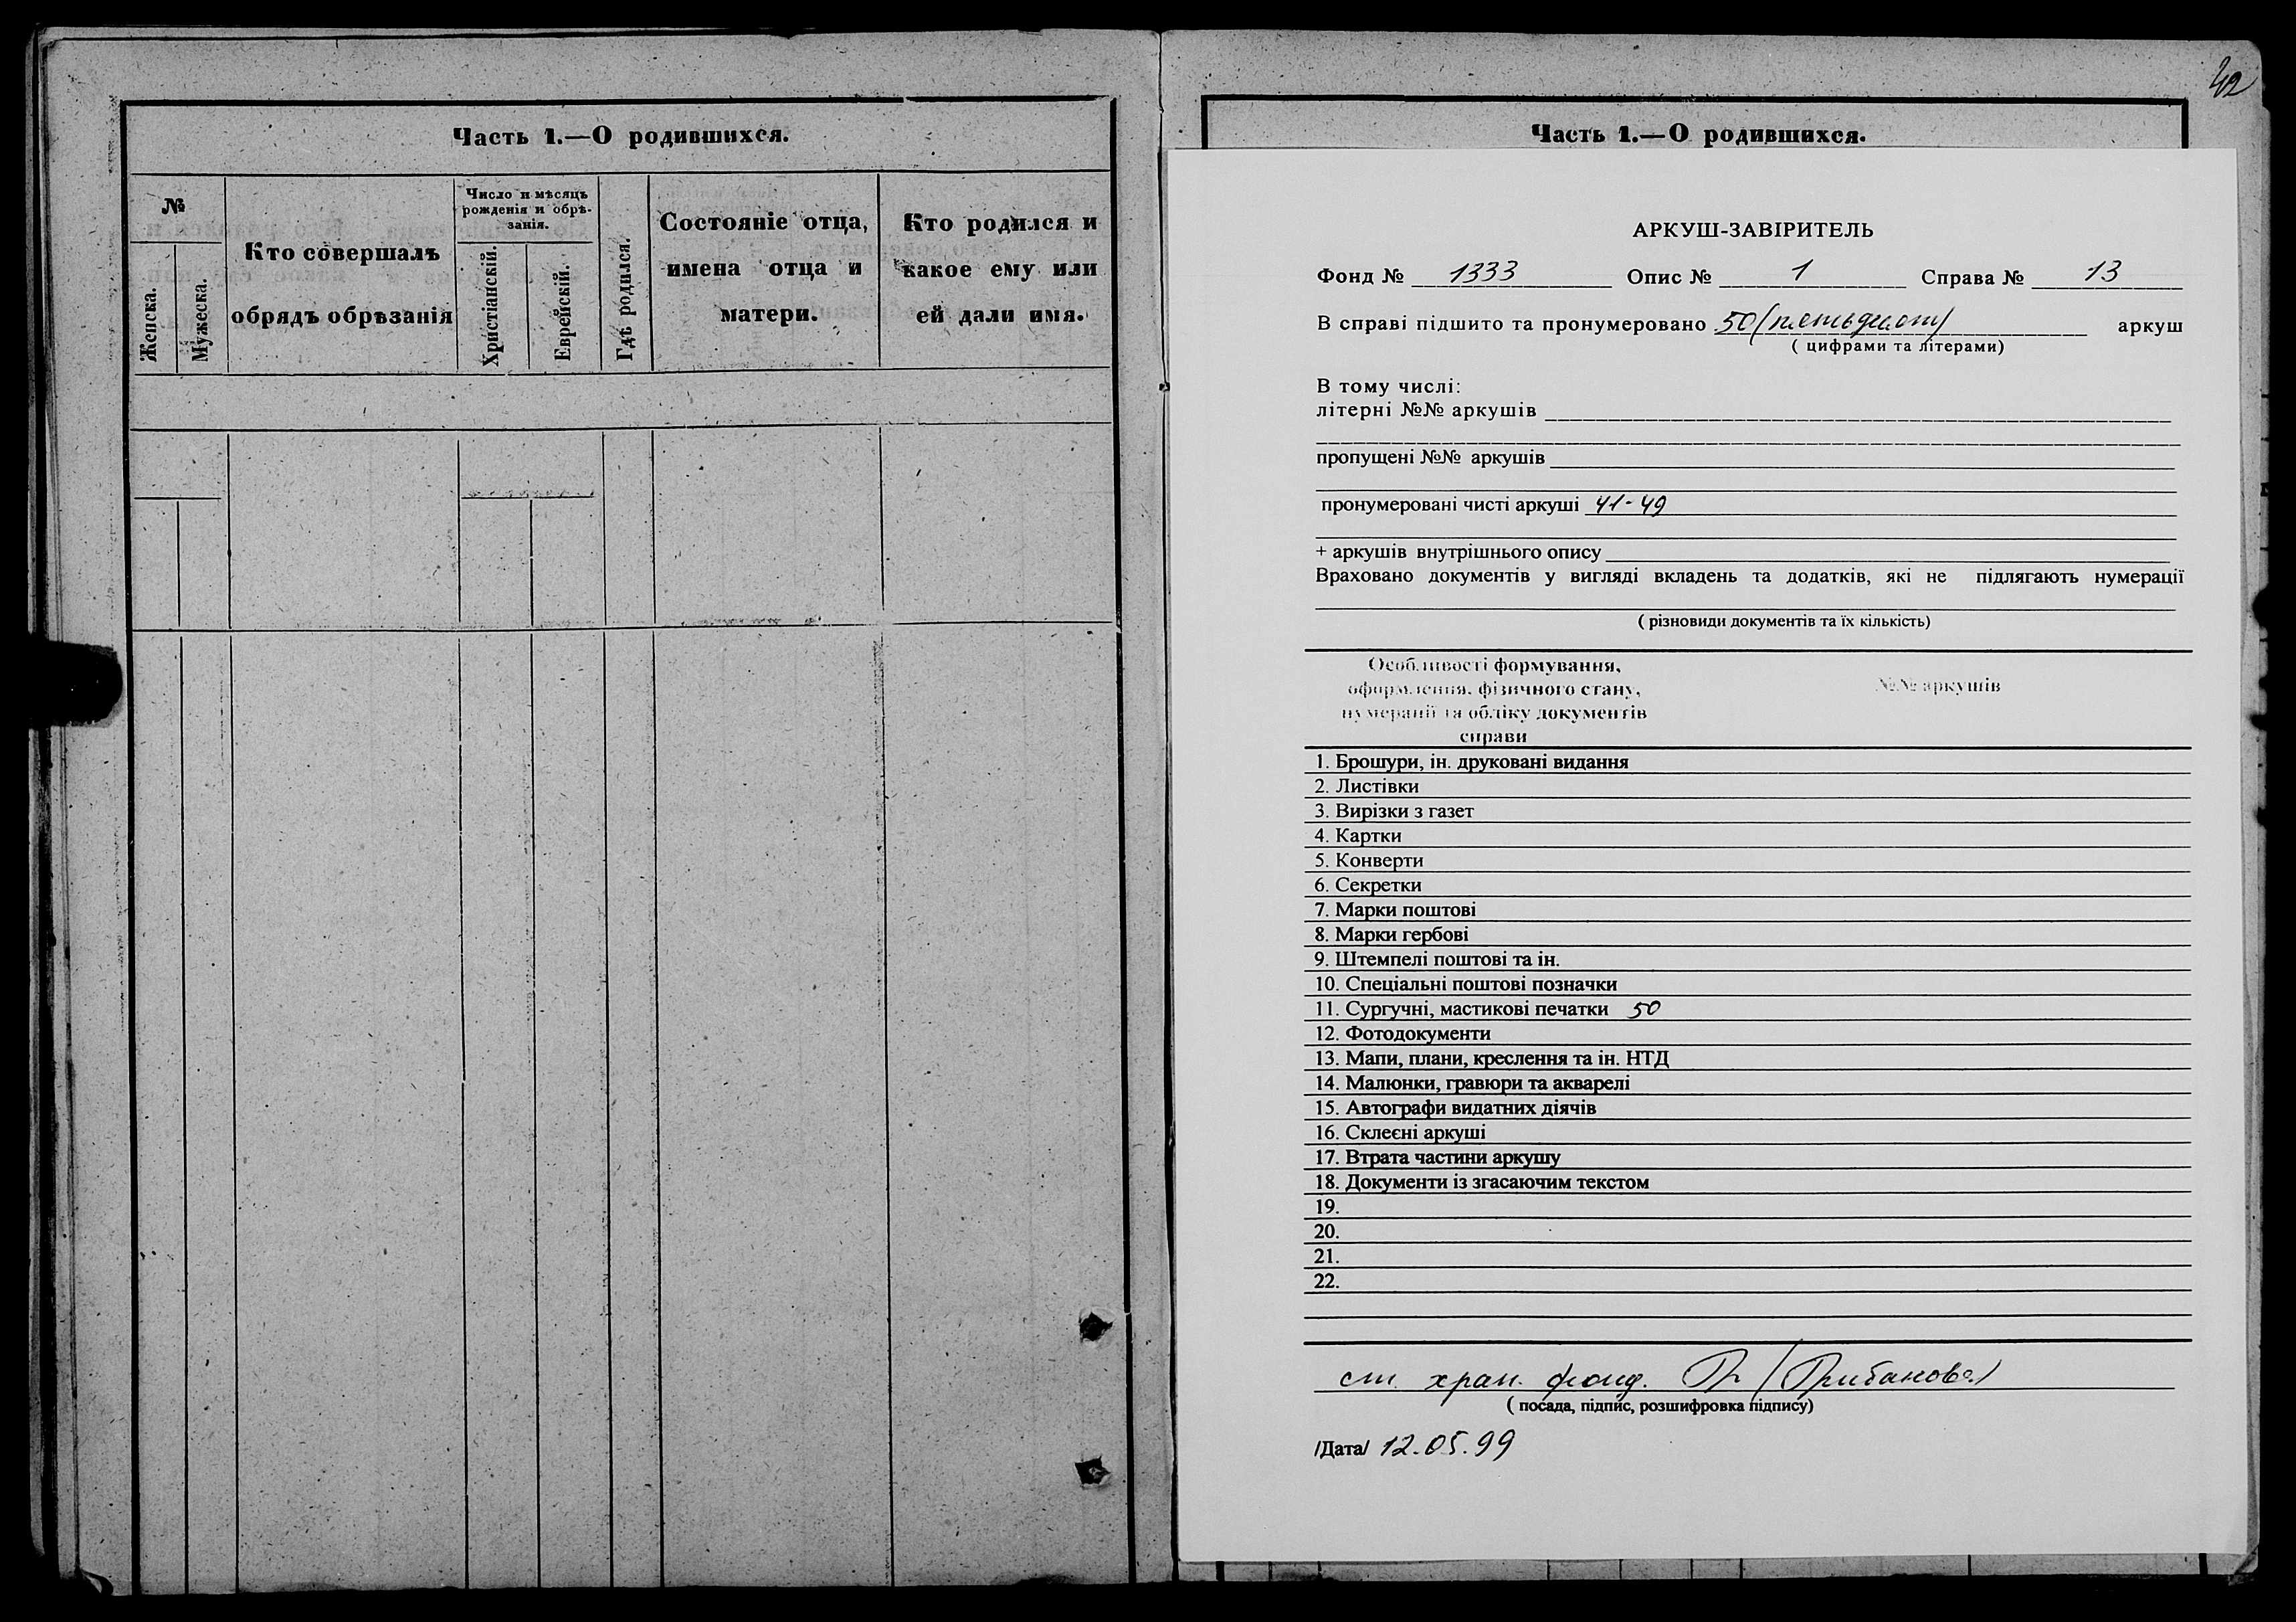 Часть 1.—О родившихся.
№
Женска.
Мужеска.
Кто совершалъ
обрядъ обрѣзанія
Число и мѣсяцъ
рожденія и обрѣ-
занія.
Христіанскій.
Еврейскій.
Гдѣ родился.
Состояніе отца,
имена отца и
матери.
Кто родился и
какое ему или
ей дали имя.
42
Часть 1.—О родившихся.
АРКУШ-ЗАВІРИТЕЛЬ
Фонд № 1333 Опис № 1 Справа № 13
В справі підшито та пронумеровано 50 (пятьдесят) аркуш
( цифрами та літерами)
В тому числі:
літерні №№ аркушів
пропущені №№ аркушів
пронумеровані чисті аркуші 41-49
+ аркушів внутрішнього опису
Враховано документів у вигляді вкладень та додатків, які не підлягають нумерації
( різновиди документів та їх кількість)
Особливості формування,
оформлення, фізичного стану,
нумерації та обліку документів
справи
№№ аркушів
1. Брошури, ін. друковані видання
2. Листівки
3. Вирізки з газет
4. Картки
5. Конверти
6. Секретки
7. Марки поштові
8. Марки гербові
9. Штемпелі поштові та ін.
10. Спеціальні поштові позначки
11. Сургучні, мастикові печатки 50
12. Фотодокументи
13. Мапи, плани, креслення та ін. НТД
14. Малюнки, гравюри та акварелі
15. Автографи видатних діячів
16. Склеєні аркуші
17. Втрата частини аркушу
18. Документи із згасаючим текстом
19.
20.
21.
22.
ст. хран. фонд.
( посада, підпис, розшифровка підпису)
/Дата/ 12.05.99